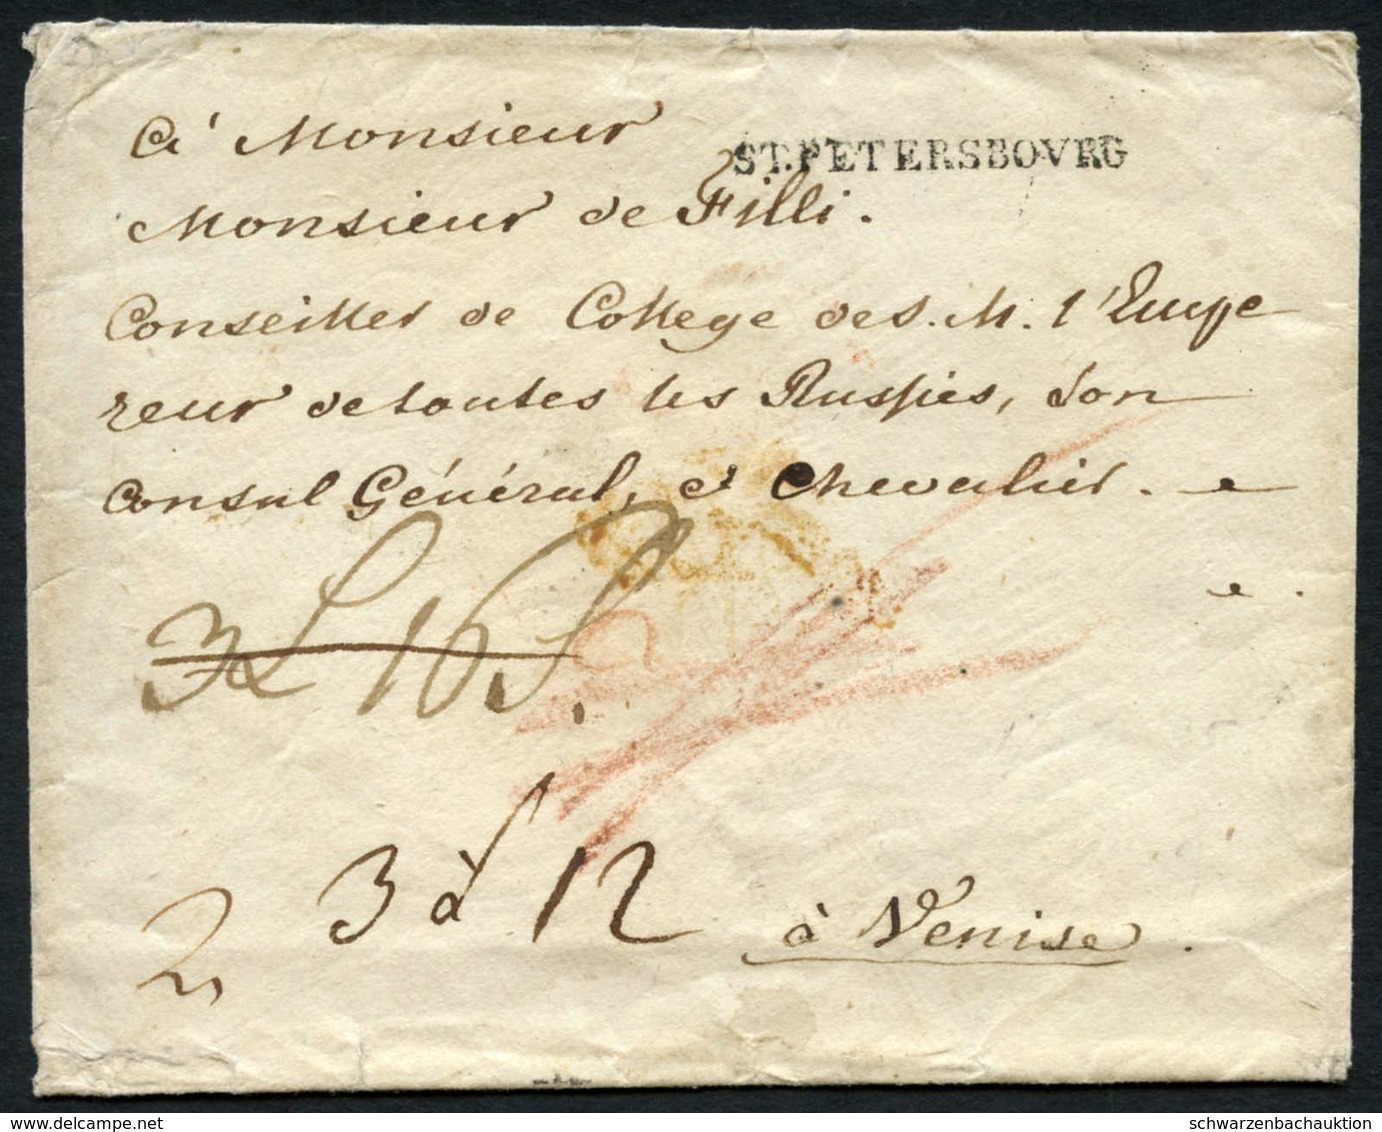 à Monsieur
ST.PETERSBOVRG
Monsieur de Filli.
Conseiller de College de S. M. l'Empe
reur de toutes les Russies, son
Consul Général, et Chevalier. e
e.
3 L 16 S.
3 à 12
2
à Venise.
schwarzenbachauktion